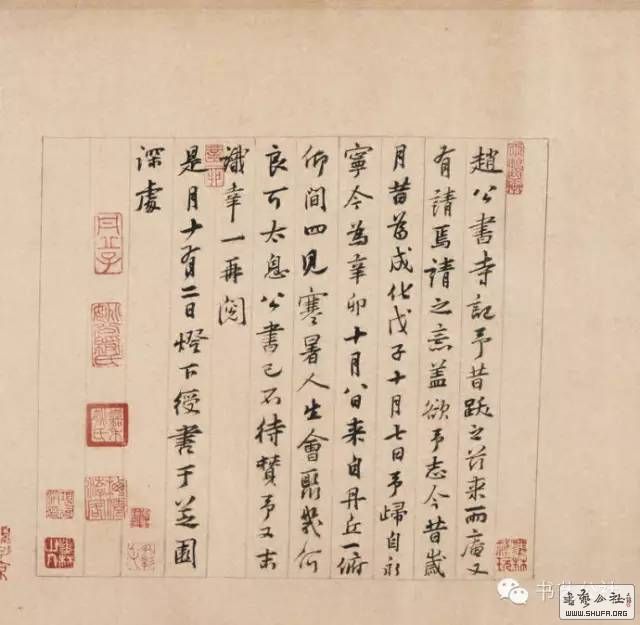 趙公書寺記予昔跋之茲來而庵又
有請焉請之意盖欲予志今昔歲
月昔為成化戊子十月七日予歸自永
寧今為辛卯十月八日来自丹丘一俯
仰間四見寒暑人生會聚幾何
良可太息公書已不待賛予又末
識幸一再閱
是月十有二日燈下綬書于芝園
深處
書艺公社
WWW.SHUFA.ORG